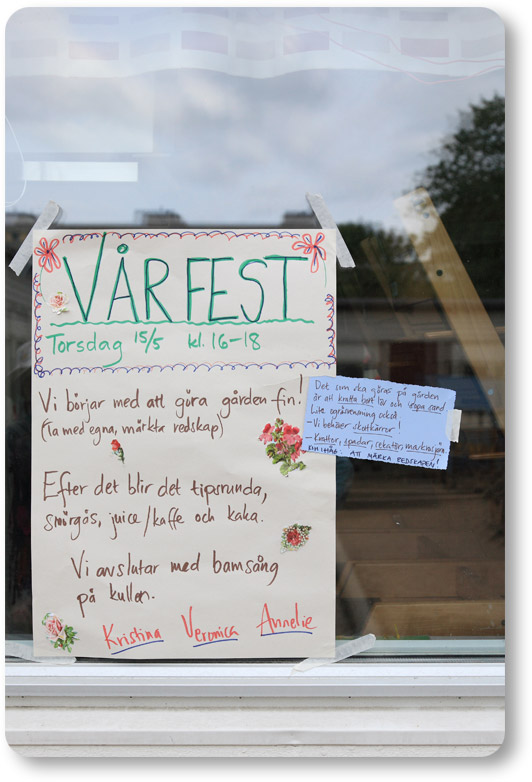 VÅRFEST
Torsdag 15/5 kl. 16-18
Vi börjar med att göra gården fin!
(Ta med egna, märkta redskap)
Efter det blir det tipsrunda,
smörgås, juice/kaffe och kaka.
Vi avslutar med barnsång
på kullen.
Kristina Veronica Annelie
Det som ska göras på gården
är att kratta bort löv och sopa sand.
Lite ogräsrensning också
-Vi behöver skottkärror!
-Krattor, spadar, sekatör,
KOM IHÅG ATT MÄRKA REDSKAPEN!